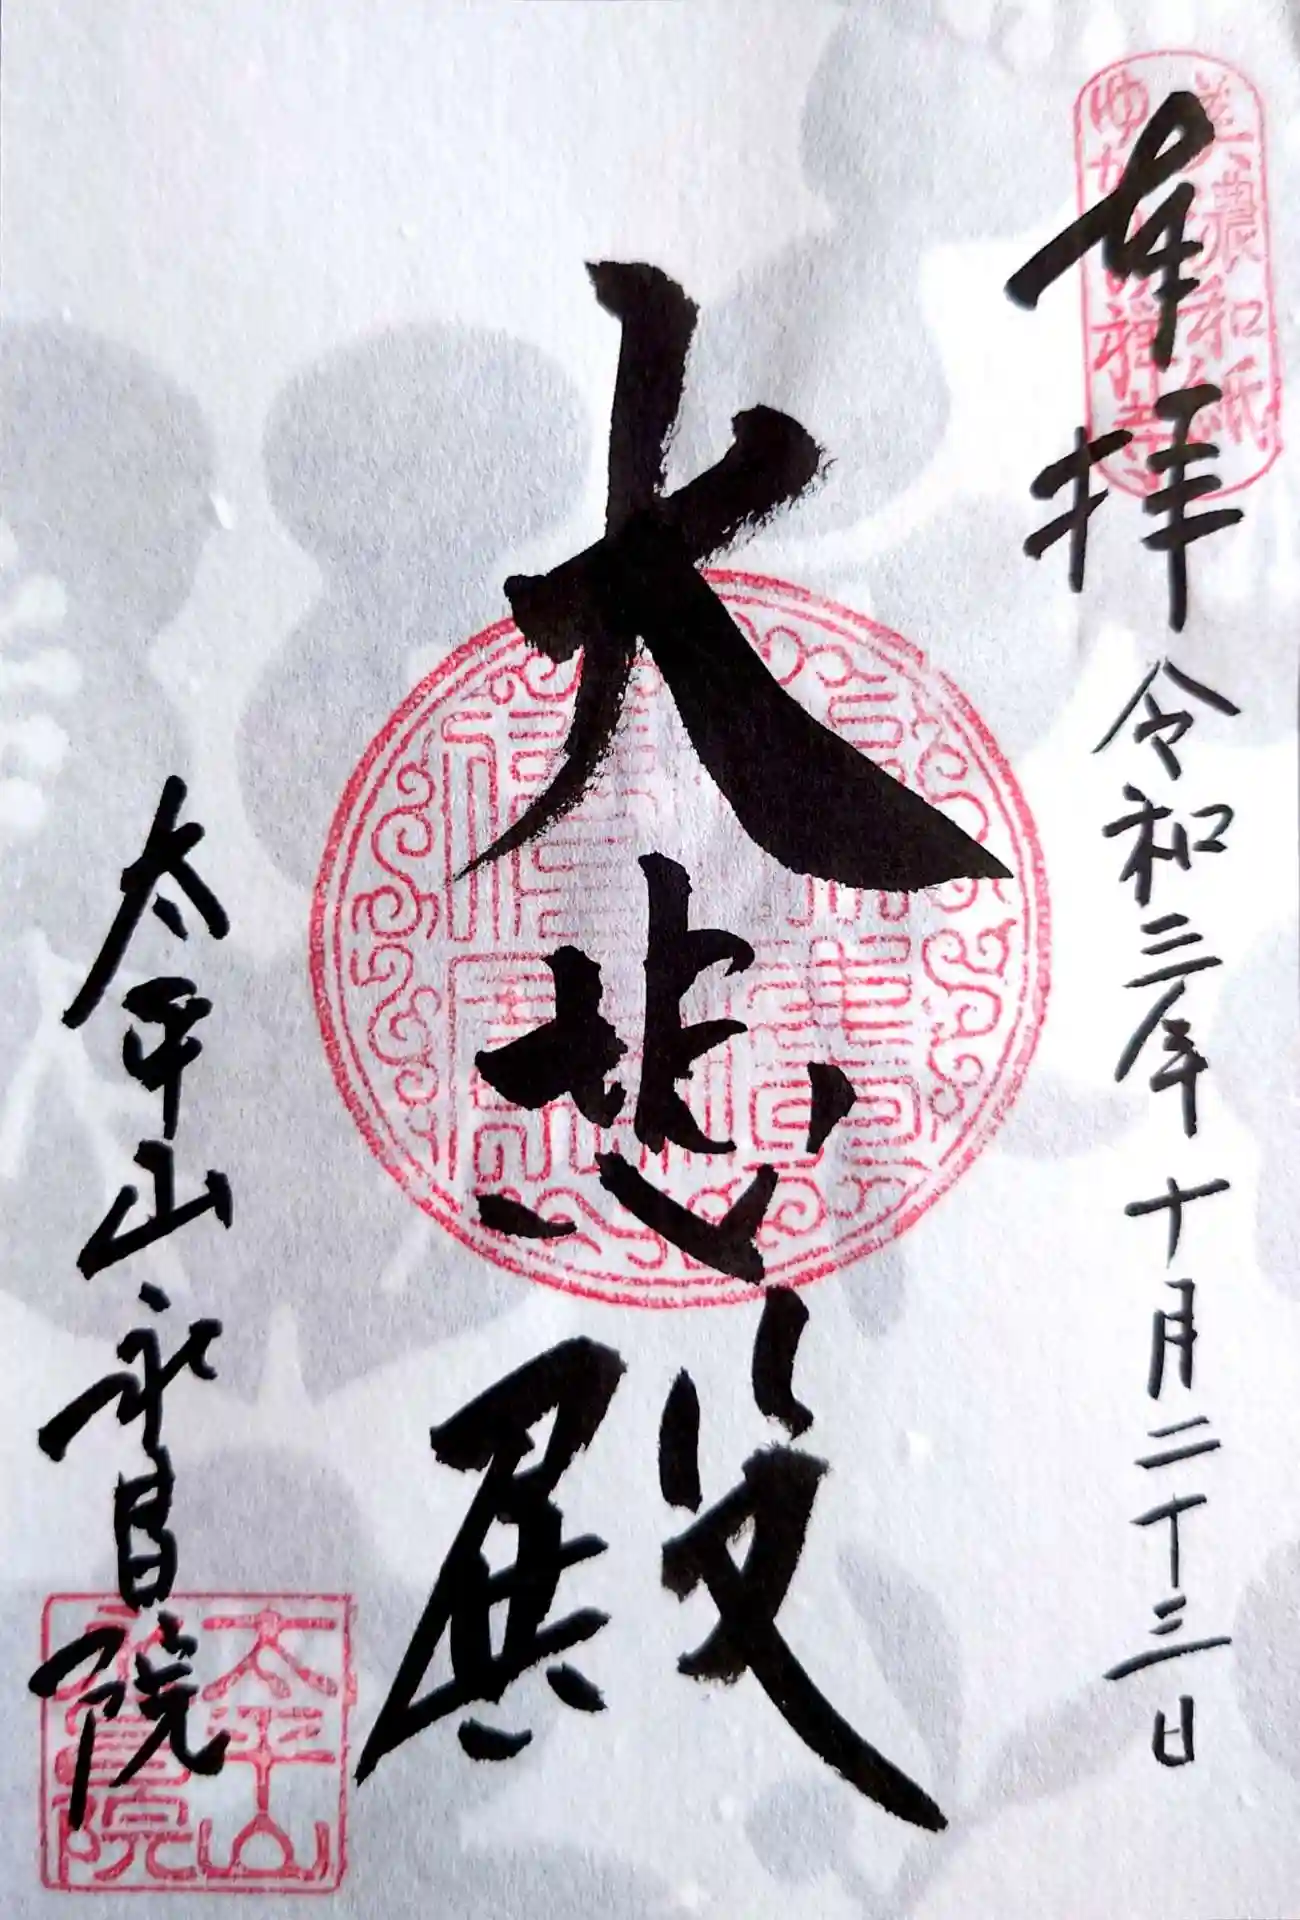 奉拝 令和三年十月二十三日
美濃和紙
大悲殿
太平山永昌院
太平山
永昌院